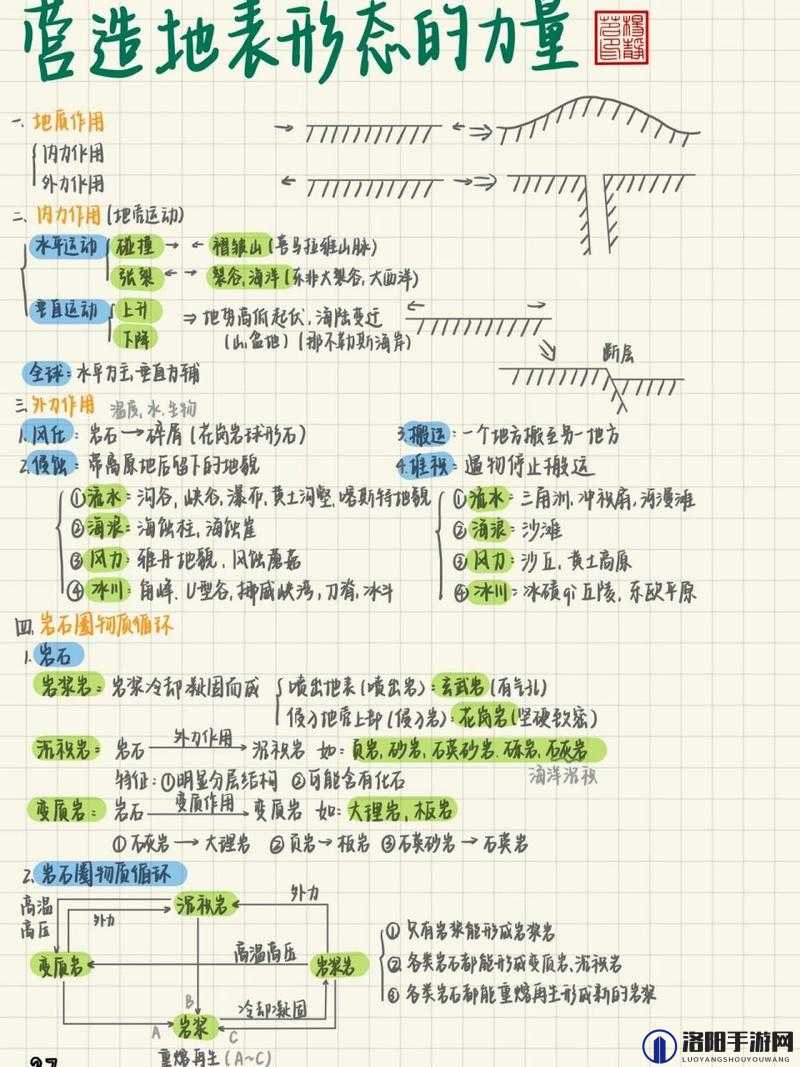 营造地表形态的力量
一. 地质作用
内力作用
外力作用
二、内力作用(地壳运动)
水平运动 碰撞 → ← 褶皱山(喜马拉雅山脉)
张裂 ← → 裂谷,海洋(东非大裂谷,大西洋)
垂直运动 上升
下降
⇒地势高低起伏,海陆变迁
(山,盆地)(那不勒斯海岸)
断层
全球:水平为主,垂直为辅
三.外力作用 温度,水,生物
1.风化:岩石→碎屑(花岗岩球形石)
2.侵蚀:带离原地后留下的地貌
①流水:沟谷,峡谷,瀑布,黄土沟壑,喀斯特地貌
②海浪:海蚀柱,海蚀崖
③风力:雅丹地貌,风蚀蘑菇
④冰川:角峰、U型谷,挪威峡湾,刀脊,冰斗
3.搬运:一个地方搬至另一地方
4.堆积:遇物停止搬运
①流水:三角洲,冲积扇,河漫滩
②海浪:沙滩
③风力:沙丘,黄土高原
④冰川:冰碛 丘陵,东欧平原
四.岩石圈物质循环
1.岩石
岩浆岩:岩浆冷却凝固而成
喷出地表(喷出岩):玄武岩(有气孔)
侵入地壳上部(侵入岩):花岗岩(坚硬致密)
沉积岩:岩石 外力作用→ 沉积岩 如:页岩,砂岩,石英砂岩,砾岩,石灰岩
海洋沉积
特征:①明显分层结构 ②可能含有化石
变质岩:岩石 变质作用→ 变质岩 如:大理岩,板岩
①石灰岩→大理岩 ②页岩→板岩 ③石英砂岩→石英岩
2.岩石圈物质循环
高温
高压
外力
沉积岩
外力
变质岩
高温高压
岩浆岩
A
B
C
岩浆
冷却凝固
重熔再生(A~C)
①只有岩浆能形成岩浆岩
②各类岩石都能形成变质岩,沉积岩
③各类岩石都能重熔再生形成新的岩浆
洛阳手游网
LUOYANGSHOUYOUWANG